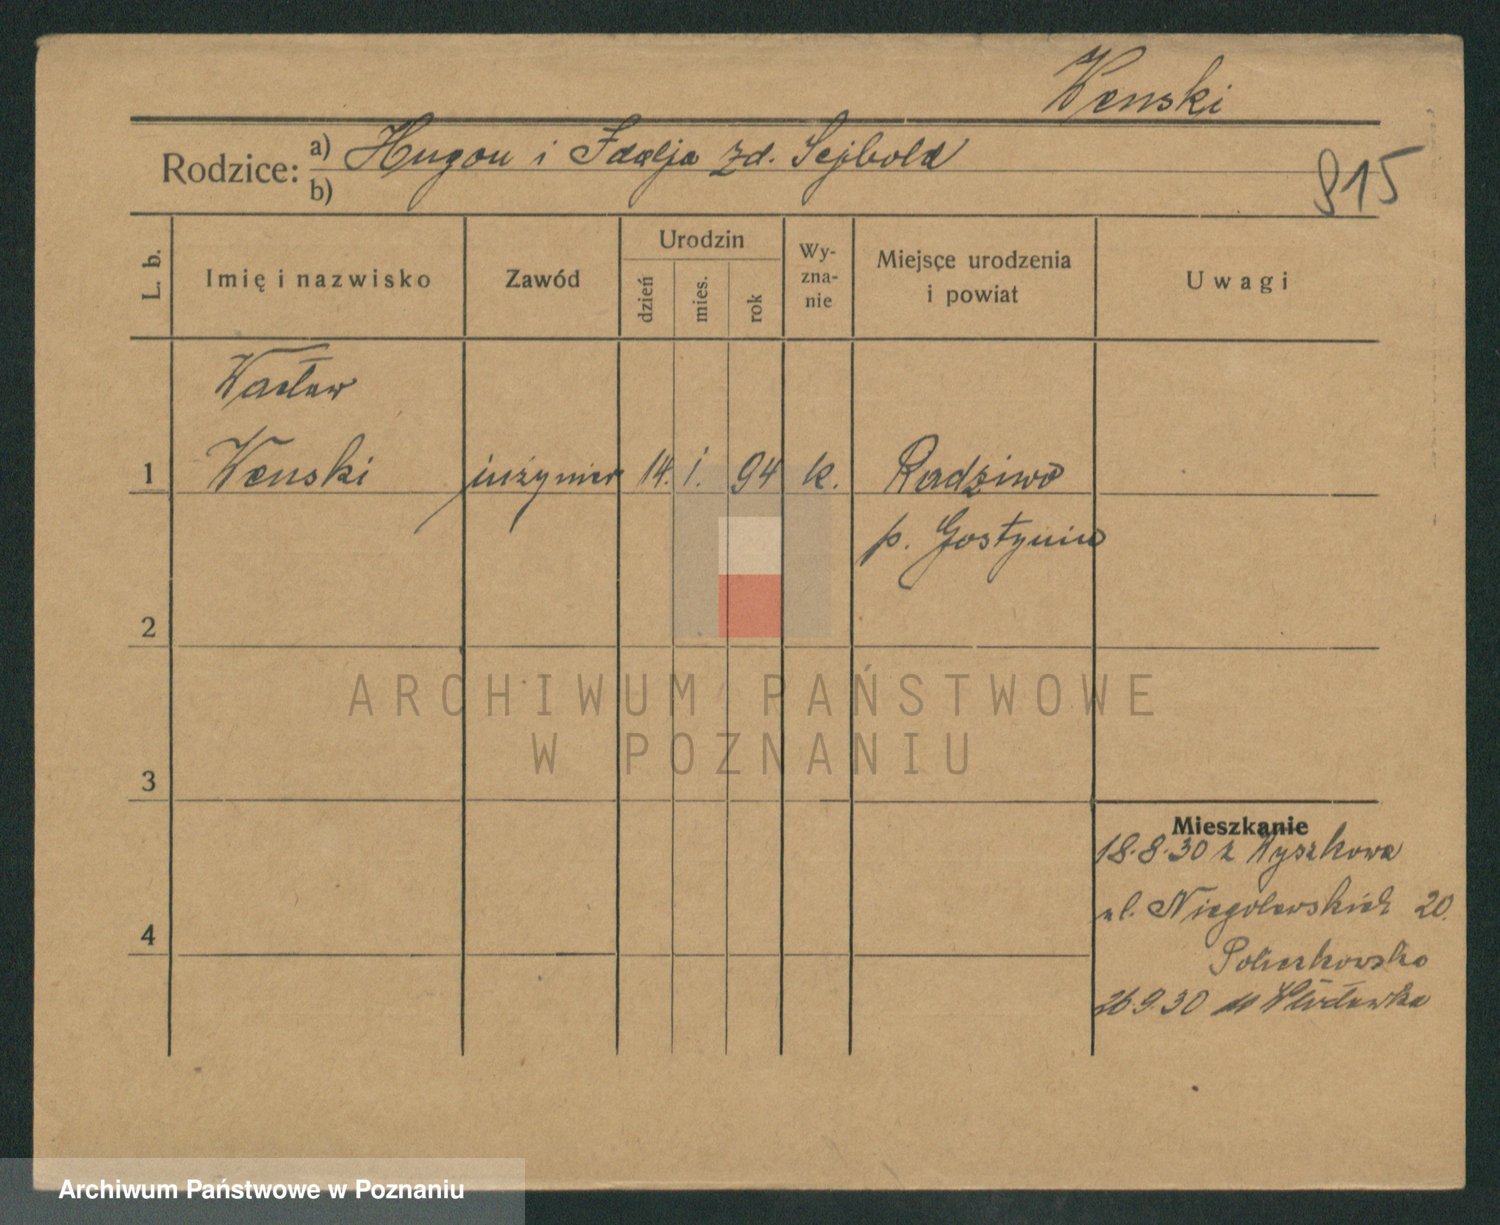 Wenski
Rodzice: a) Hugon i Idalja zd. Sejbold
b)
915
L. b.
Imię i nazwisko
Zawód
Urodzin
dzień
mies.
rok
Wy-
zna-
nie
Miejsce urodzenia
i powiat
Uwagi
Wacław
1 Wenski inżynier 14. i. 94 k. Radziwo
p. Gostynin
2
ARCHIWUM PAŃSTWOWE
W POZNANIU
3
Mieszkanie
18.8.30 z Wyszkowa
ul. Niegolewskich 20.
4
26.9.30 Włocławka
Archiwum Państwowe w Poznaniu